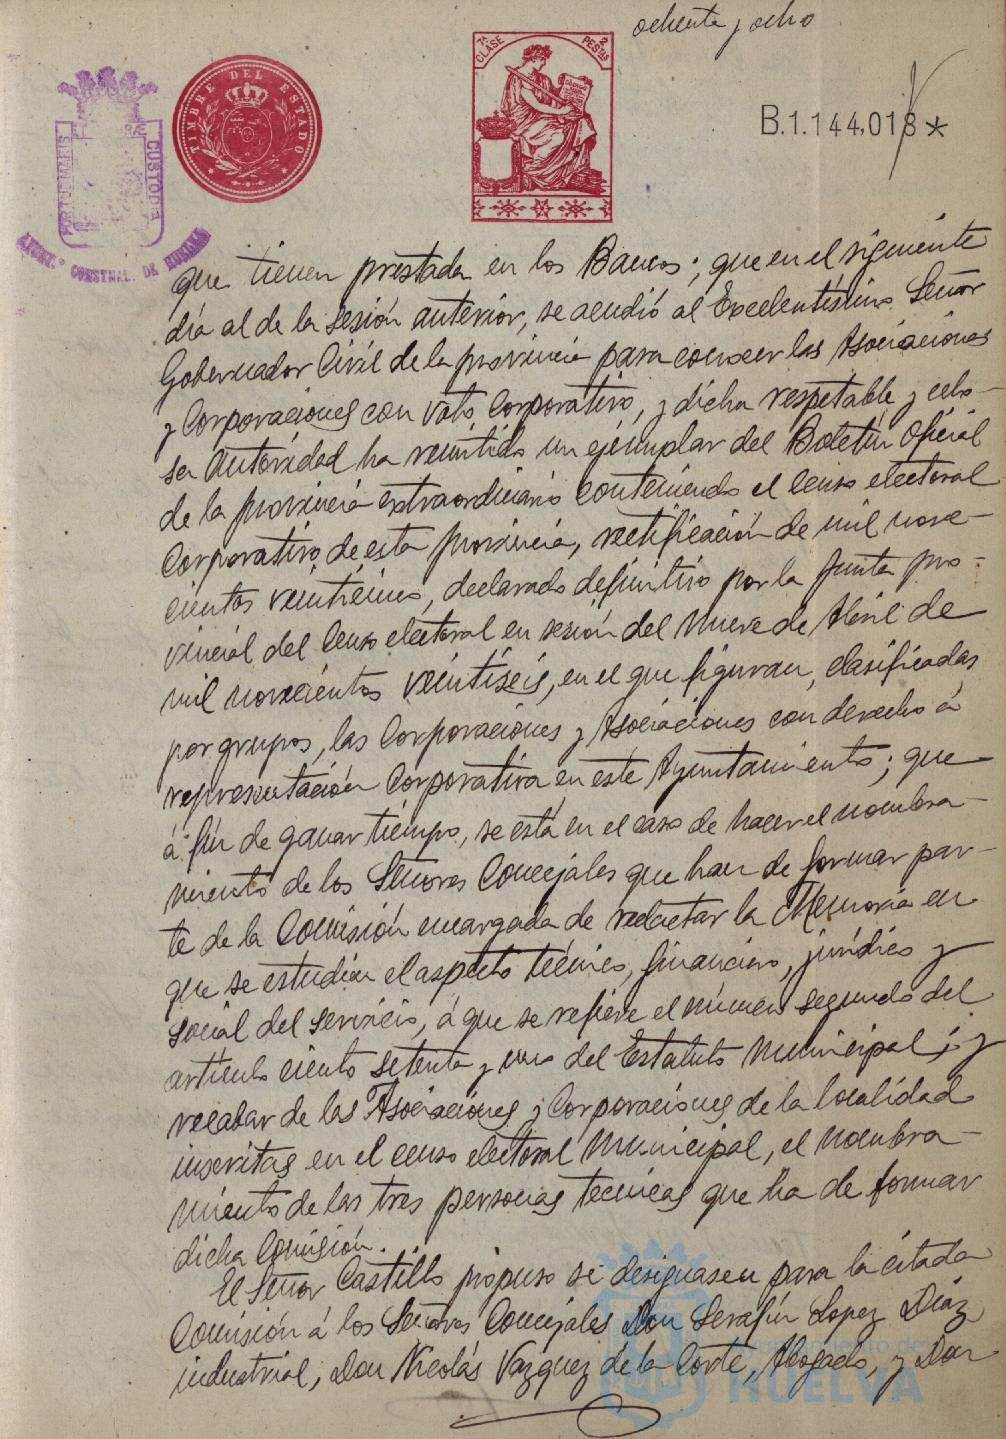 ochenta y ocho
7ª CLASE
2 PESTAS
TIMBRE DEL ESTADO
B.1.144,018*
PORTUS MARIS
CUSTODIA
AYUNT.º CONSTNAL. DE HUELVA
que tienen prestada en los Bancos; que en el siguiente
día al de la sesión anterior, se acudió al Excelentísimo Señor
Gobernador Civil de la provincia para conocer las Asociaciones
y Corporaciones con voto Corporativo, y dicha respetable y celo-
sa Autoridad ha remitido un ejemplar del Boletín Oficial
de la provincia extraordinario conteniendo el Censo electoral
Corporativo de esta provincia, rectificación de mil nove-
cientos veinticinco, declarado definitivo por la Junta pro-
vincial del Censo electoral en sesión del Nueve de Abril de
mil novecientos veintiseis, en el que figuran, clasificadas
por grupos, las Corporaciones y Asociaciones con derecho á
representación Corporativa en este Ayuntamiento; que
á fin de ganar tiempo, se está en el caso de hacer el nombra-
miento de los Señores Concejales que han de formar par-
te de la Comisión encargada de redactar la Memoria en
que se estudien el aspecto técnico, financiero, jurídico y
social del servicio, á que se refiere el número segundo del
artículo ciento setenta y uno del Estatuto Municipal; y
recabar de las Asociaciones y Corporaciones de la localidad
inscritas en el censo electoral Municipal, el nombra-
miento de las tres personas técnicas que ha de formar
dicha Comisión.
El Señor Castillo propuso se designasen para la citada
Comisión á los Señores Concejales Don Serafín Lopez Díaz
industrial, Don Nicolás Vazquez de la Corte, Abogado, y Don
HUELVA